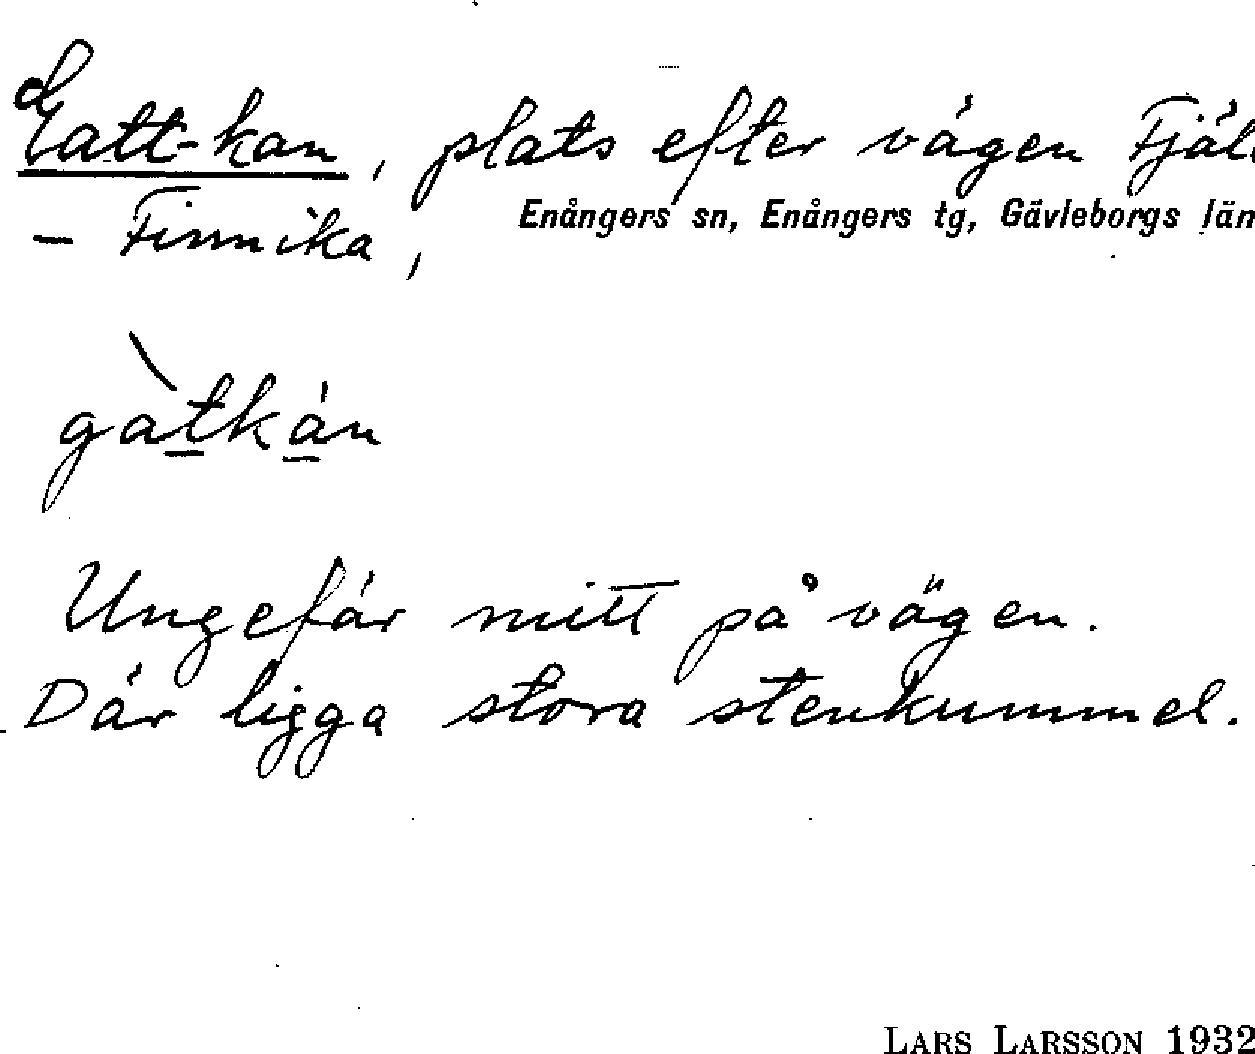 Gatt-kan, plats efter vägen Fjäl
– Finnika,
Enångers sn, Enångers tg, Gävleborgs län
gàtkán
Ungefär mitt på vägen.
Där ligga stora stenkummel.
LARS LARSSON 1932